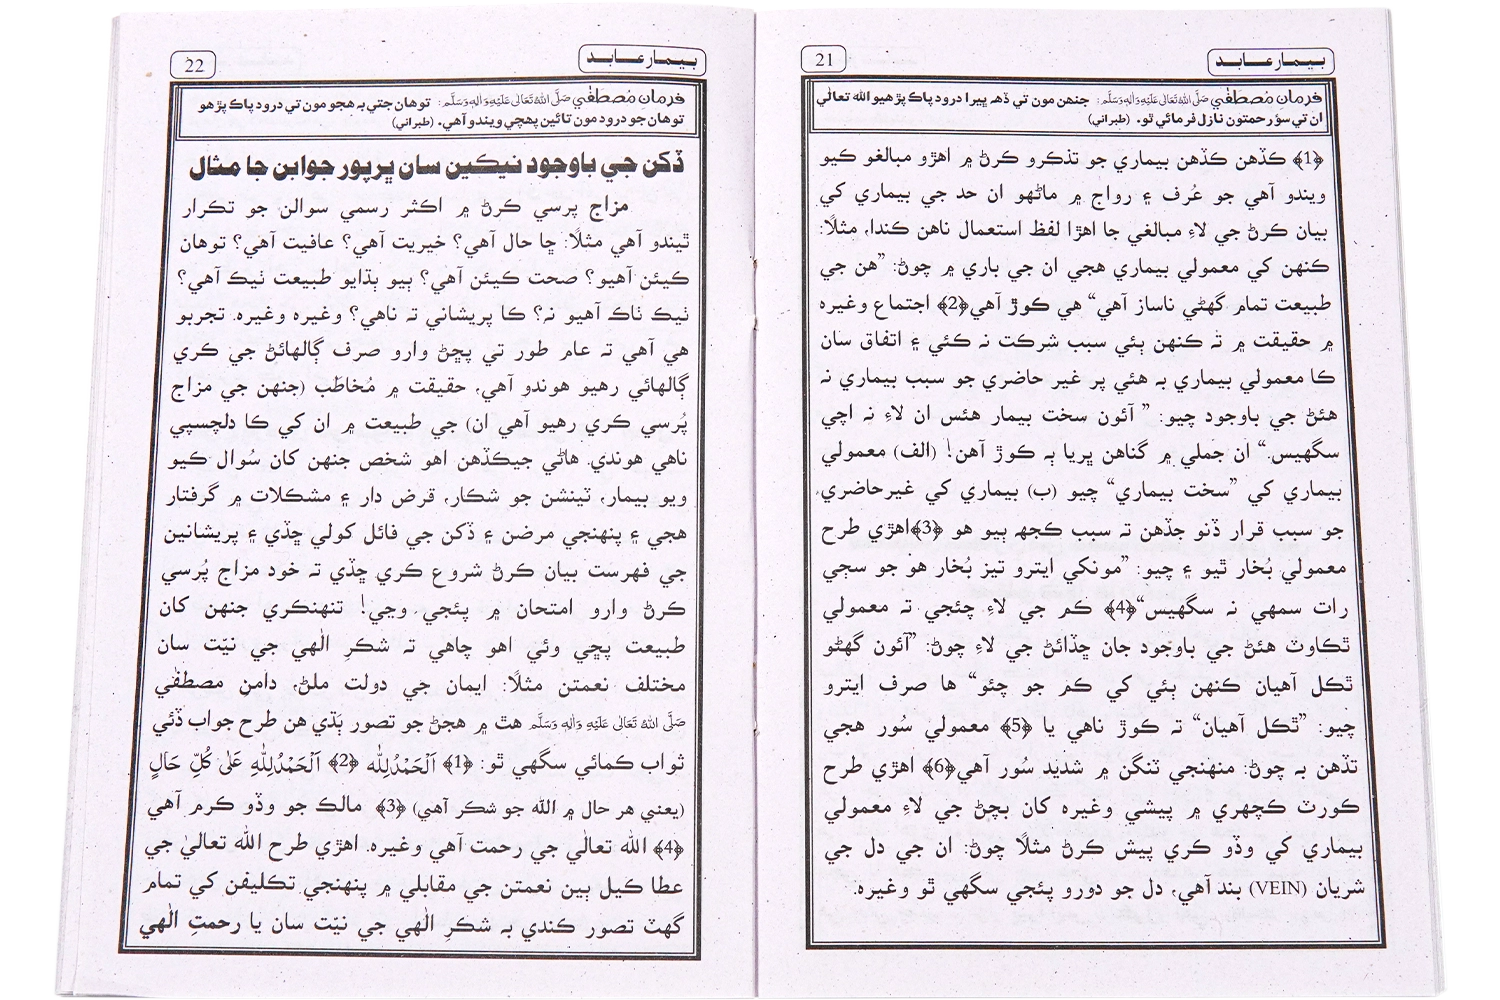 بيمار عابد
21
فرمان مُصطفٰي صَلَّى اللهُ تَعَالٰى عَلَيْهِ وَاٰلِهٖ وَسَلَّم: جنهن مون تي ڏهه ڀيرا درود پاڪ پڙهيو الله تعالٰي
ان تي سؤ رحمتون نازل فرمائي ٿو. (طبراني)
﴿1﴾ ڪڏهن ڪڏهن بيماري جو تذڪرو ڪرڻ ۾ اهڙو مبالغو ڪيو
ويندو آهي جو عُرف ۽ رواج ۾ ماڻهو ان حد جي بيماري کي
بيان ڪرڻ جي لاءِ مبالغي جا اهڙا لفظ استعمال ناهن ڪندا، مثلاً:
ڪنهن کي معمولي بيماري هجي ان جي باري ۾ چوڻ: ”هن جي
طبيعت تمام گهڻي ناساز آهي“ هي ڪوڙ آهي﴿2﴾ اجتماع وغيره
۾ حقيقت ۾ ته ڪنهن ٻئي سبب شرڪت نه ڪئي ۽ اتفاق سان
ڪا معمولي بيماري به هئي پر غير حاضري جو سبب بيماري نه
هئڻ جي باوجود چيو: ” آئون سخت بيمار هئس ان لاءِ نه اچي
سگهيس.“ ان جملي ۾ گناهن ڀريا ٻه ڪوڙ آهن! (الف) معمولي
بيماري کي ”سخت بيماري“ چيو (ب) بيماري کي غيرحاضري،
جو سبب قرار ڏنو جڏهن ته سبب ڪجهه ٻيو هو ﴿3﴾اهڙي طرح
معمولي بُخار ٿيو ۽ چيو: ”مونکي ايترو تيز بُخار هو جو سڄي
رات سمهي نه سگهيس“﴿4﴾ ڪم جي لاءِ چئجي ته معمولي
ٿڪاوٽ هئڻ جي باوجود جان ڇڏائڻ جي لاءِ چوڻ: ”آئون گهڻو
ٿڪل آهيان ڪنهن ٻئي کي ڪم جو چئو“ ها صرف ايترو
چيو: ”ٿڪل آهيان“ ته ڪوڙ ناهي يا ﴿5﴾ معمولي سُور هجي
تڏهن به چوڻ: منهنجي ٽنگن ۾ شديد سُور آهي﴿6﴾ اهڙي طرح
ڪورٽ ڪچهري ۾ پيشي وغيره کان بچڻ جي لاءِ معمولي
بيماري کي وڌو ڪري پيش ڪرڻ مثلاً چوڻ: ان جي دل جي
شريان (VEIN) بند آهي، دل جو دورو پئجي سگهي ٿو وغيره.
بيمار عابد
22
فرمان مُصطفٰي صَلَّى اللهُ تَعَالٰى عَلَيْهِ وَاٰلِهٖ وَسَلَّم: توهان جتي به هجو مون تي درود پاڪ پڙهو
توهان جو درود مون تائين پهچي ويندو آهي. (طبراني)
ڏکن جي باوجود نيڪين سان ڀرپور جوابن جا مثال
مزاج پرسي ڪرڻ ۾ اڪثر رسمي سوالن جو تڪرار
ٿيندو آهي مثلاً: ڇا حال آهي؟ خيريت آهي؟ عافيت آهي؟ توهان
ڪيئن آهيو؟ صحت ڪيئن آهي؟ ٻيو ٻڌايو طبيعت ٺيڪ آهي؟
ٺيڪ ٺاڪ آهيو نه؟ ڪا پريشاني ته ناهي؟ وغيره وغيره. تجربو
هي آهي ته عام طور تي پڇڻ وارو صرف ڳالهائڻ جي ڪري
ڳالهائي رهيو هوندو آهي، حقيقت ۾ مُخاطَب (جنهن جي مزاج
پُرسي ڪري رهيو آهي ان) جي طبيعت ۾ ان کي ڪا دلچسپي
ناهي هوندي. هاڻي جيڪڏهن اهو شخص جنهن کان سُوال ڪيو
ويو بيمار، ٽينشن جو شڪار، قرض دار ۽ مشڪلات ۾ گرفتار
هجي ۽ پنهنجي مرضن ۽ ڏکن جي فائل کولي ڇڏي ۽ پريشانين
جي فهرست بيان ڪرڻ شروع ڪري ڇڏي ته خود مزاج پُرسي
ڪرڻ وارو امتحان ۾ پئجي وڃي! تنهنڪري جنهن کان
طبيعت پڇي وئي اهو چاهي ته شڪرِ الٰهي جي نيّت سان
مختلف نعمتن مثلاً: ايمان جي دولت ملڻ، دامنِ مصطفٰي
صَلَّى اللهُ تَعَالٰى عَلَيْهِ وَاٰلِهٖ وَسَلَّم هٿ ۾ هجڻ جو تصور ٻڌي هن طرح جواب ڏئي
ثواب ڪمائي سگهي ٿو: ﴿1﴾ اَلْحَمْدُلِلّٰه ﴿2﴾ اَلْحَمْدُلِلّٰهِ عَلٰى كُلِّ حَالٍ
(يعني هر حال ۾ الله جو شڪر آهي) ﴿3﴾ مالڪ جو وڏو ڪرم آهي
﴿4﴾ الله تعالٰي جي رحمت آهي وغيره. اهڙي طرح الله تعاليٰ جي
عطا ڪيل ٻين نعمتن جي مقابلي ۾ پنهنجي تڪليفن کي تمام
گهٽ تصور ڪندي به شڪرِ الٰهي جي نيّت سان يا رحمتِ الٰهي